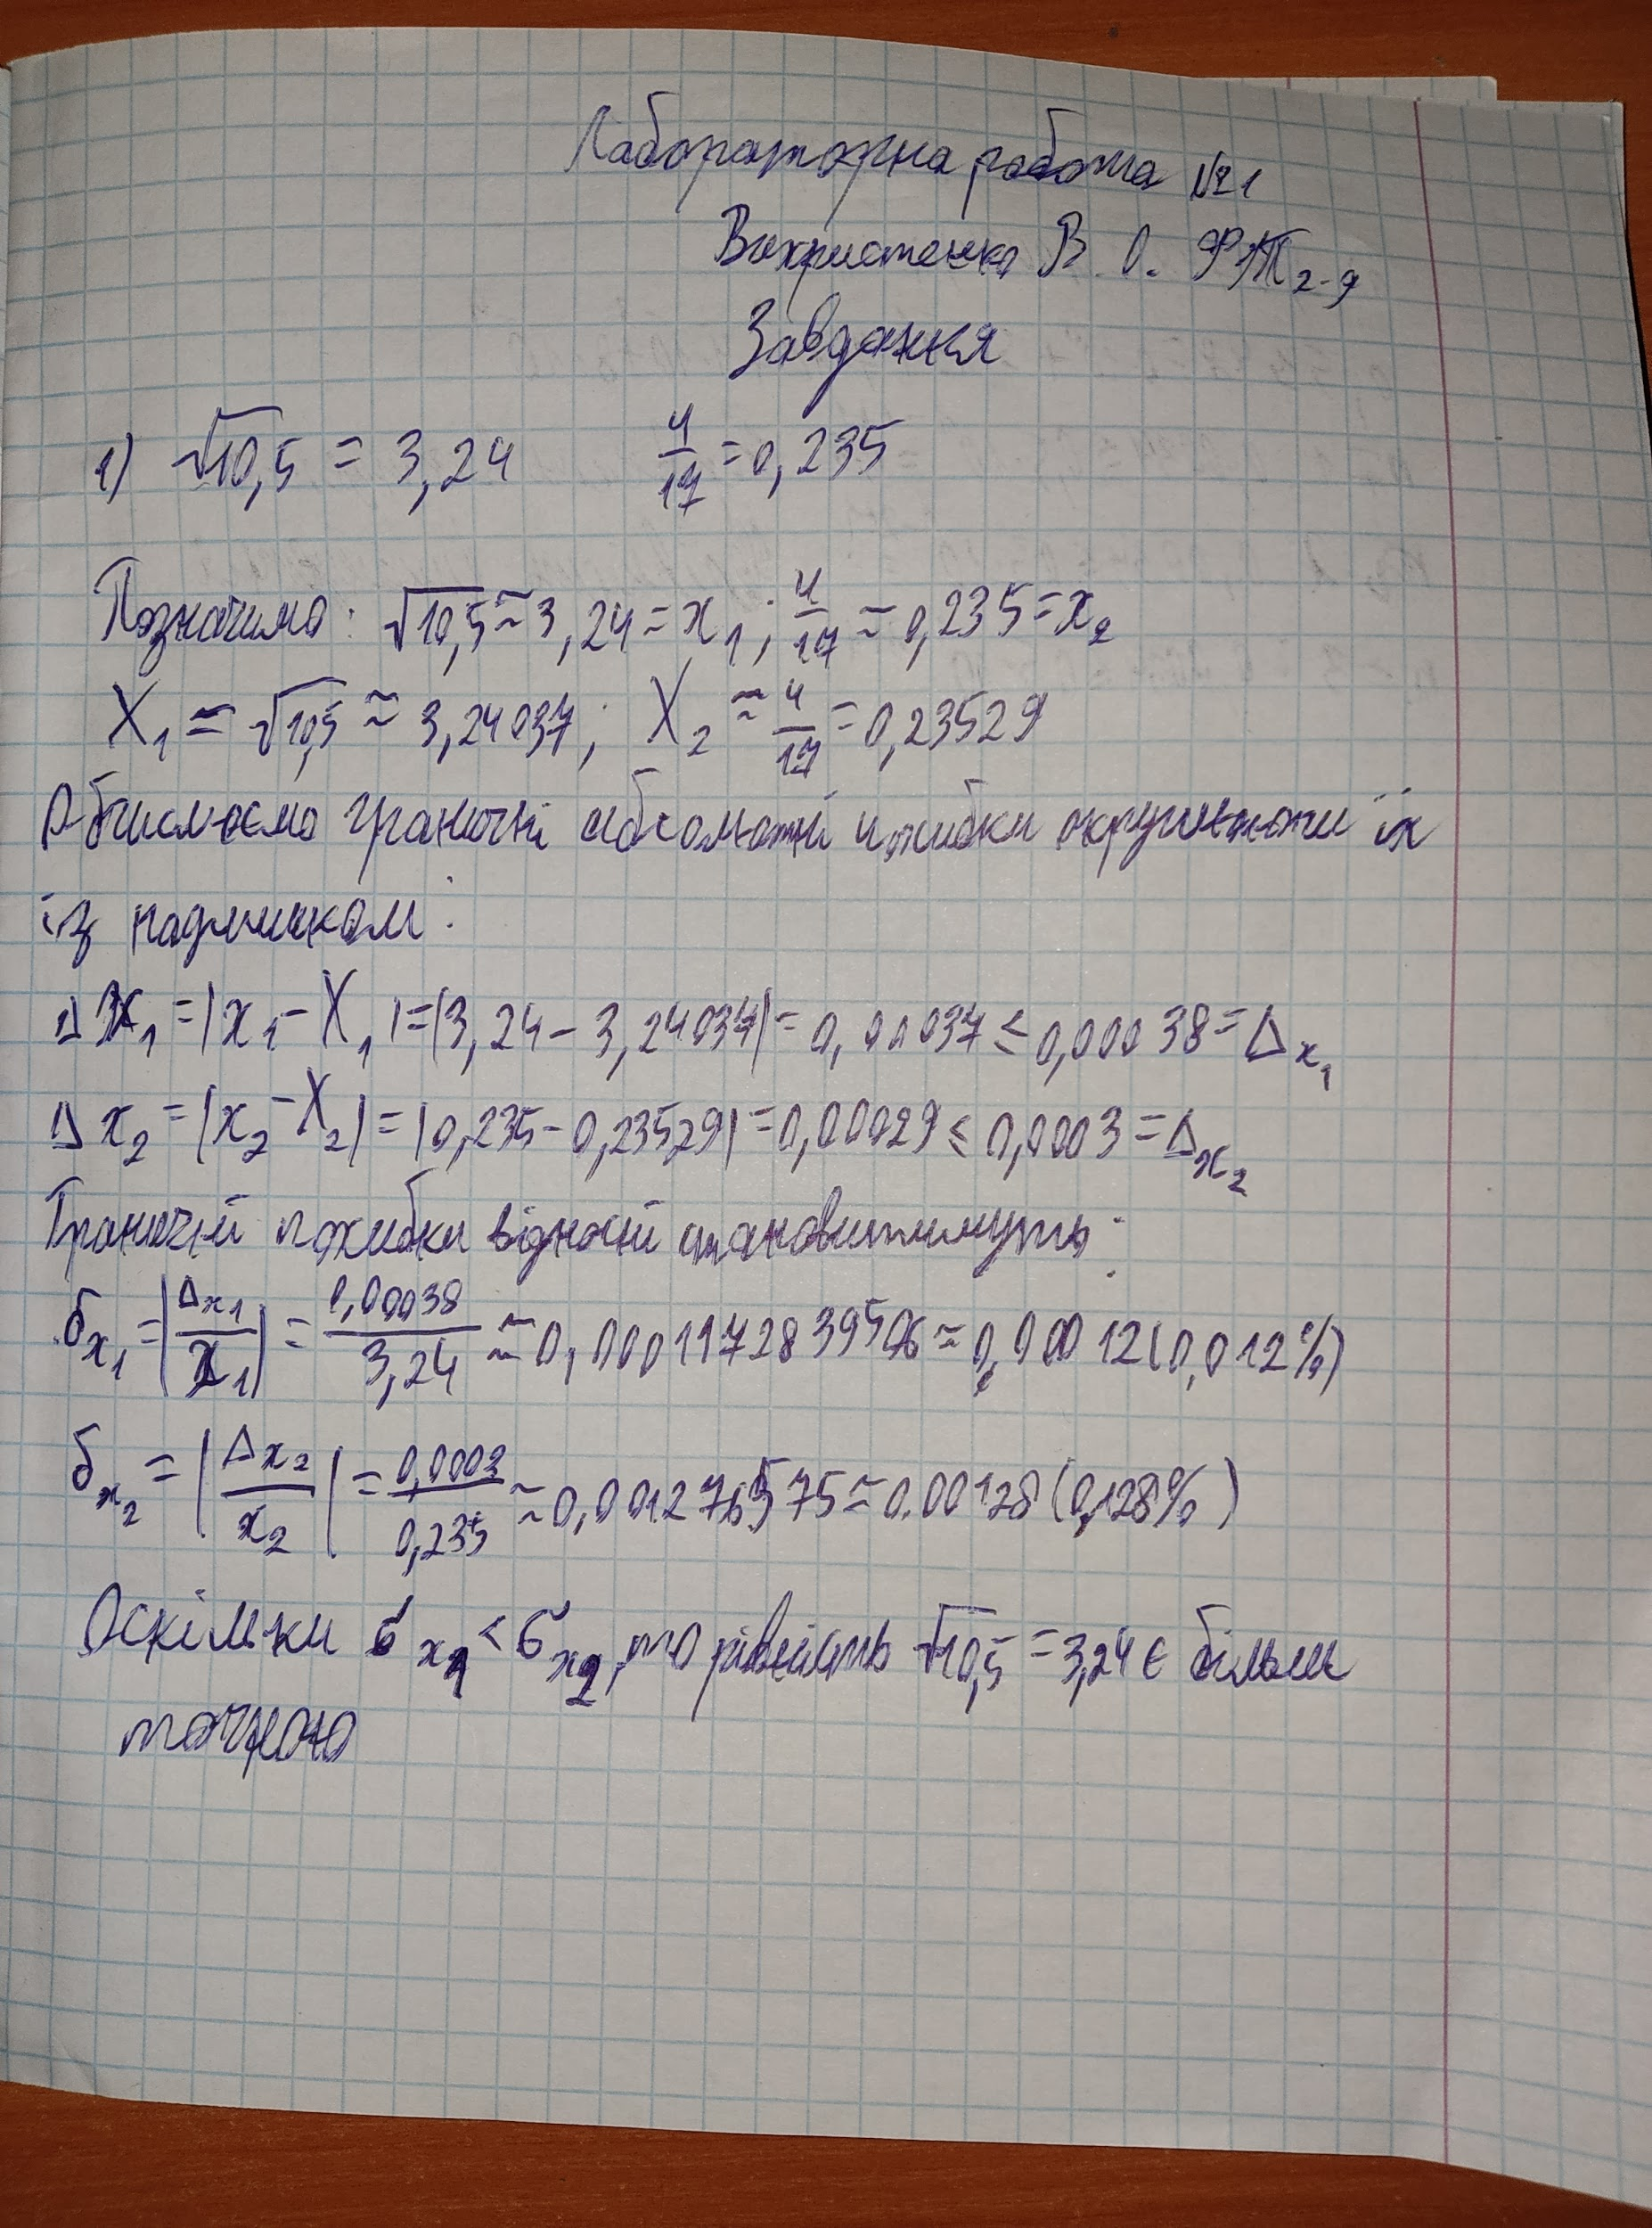 Лабораторна робота №1
Вихристенко В. О. ФТТ2-9
Завдання
1) √10,5 = 3,24 4/17 = 0,235
Позначимо: √10,5 ≈ 3,24 = x₁; 4/17 ≈ 0,235 = x₂
X₁ = √10,5 ≈ 3,24037; X₂ ≈ 4/17 = 0,23529
Обчислюємо граничні абсолютні похибки округлюючи їх
із надлишком:
Δx₁ = |x₁ - X₁| = |3,24 - 3,24037| = 0,00037 ≤ 0,00038 = Δx₁
Δx₂ = |x₂ - X₂| = |0,235 - 0,23529| = 0,00029 ≤ 0,0003 = Δx₂
Граничні похибки відносні становитимуть:
δx₁ = |Δx₁/x₁| = 0,00038/3,24 ≈ 0,0001172839506 ≈ 0,00012 (0,012%)
δx₂ = |Δx₂/x₂| = 0,0003/0,235 ≈ 0,001276575 ≈ 0.00128 (0,128%)
Оскільки δx₁ < δx₂, то рівність √10,5 = 3,24 є більш
точною